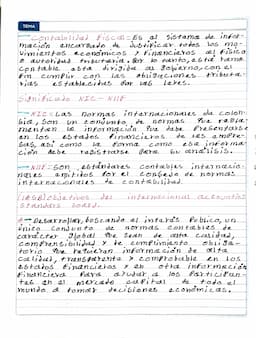 TEMA
Contabilidad Fiscal: Es el sistema de infor-
mación encargado de Justificar todos los mo-
vimientos económicos y financieros al fisico
o autoridad tributaria. Por lo tanto, esta rama
contable esta dirigida al gobierno, con el
fin cumplir con las obligaciones tributa-
rias establecidas por las leyes.
Significado NIC - NIIF
NIC: Las normas internacionales de
son un conjunto de normas que
mentan la información que debe Presentarse
en los estados financieros de las empre-
sas, así como la forma como esa informa-
ción debe registrarse para su análisis.
NIIF: Son estándares contables internacio-
nales emitidos por el consejo de normas
internacionales de contabilidad.
(IASB) Objetivos del international accounting
standars board.
Desarrollar, buscando el interés Público, un
único conjunto de normas contables de
carácter global que sean de alta calidad,
comprensibles y de cumplimiento obliga-
torio que requieran información de alta
calidad, transparente y comparable en los
estados financieros y en otra información
financiera para ayudar a los Participan-
tes en el mercado capital de todo el
mundo a tomar decisiones económicas.